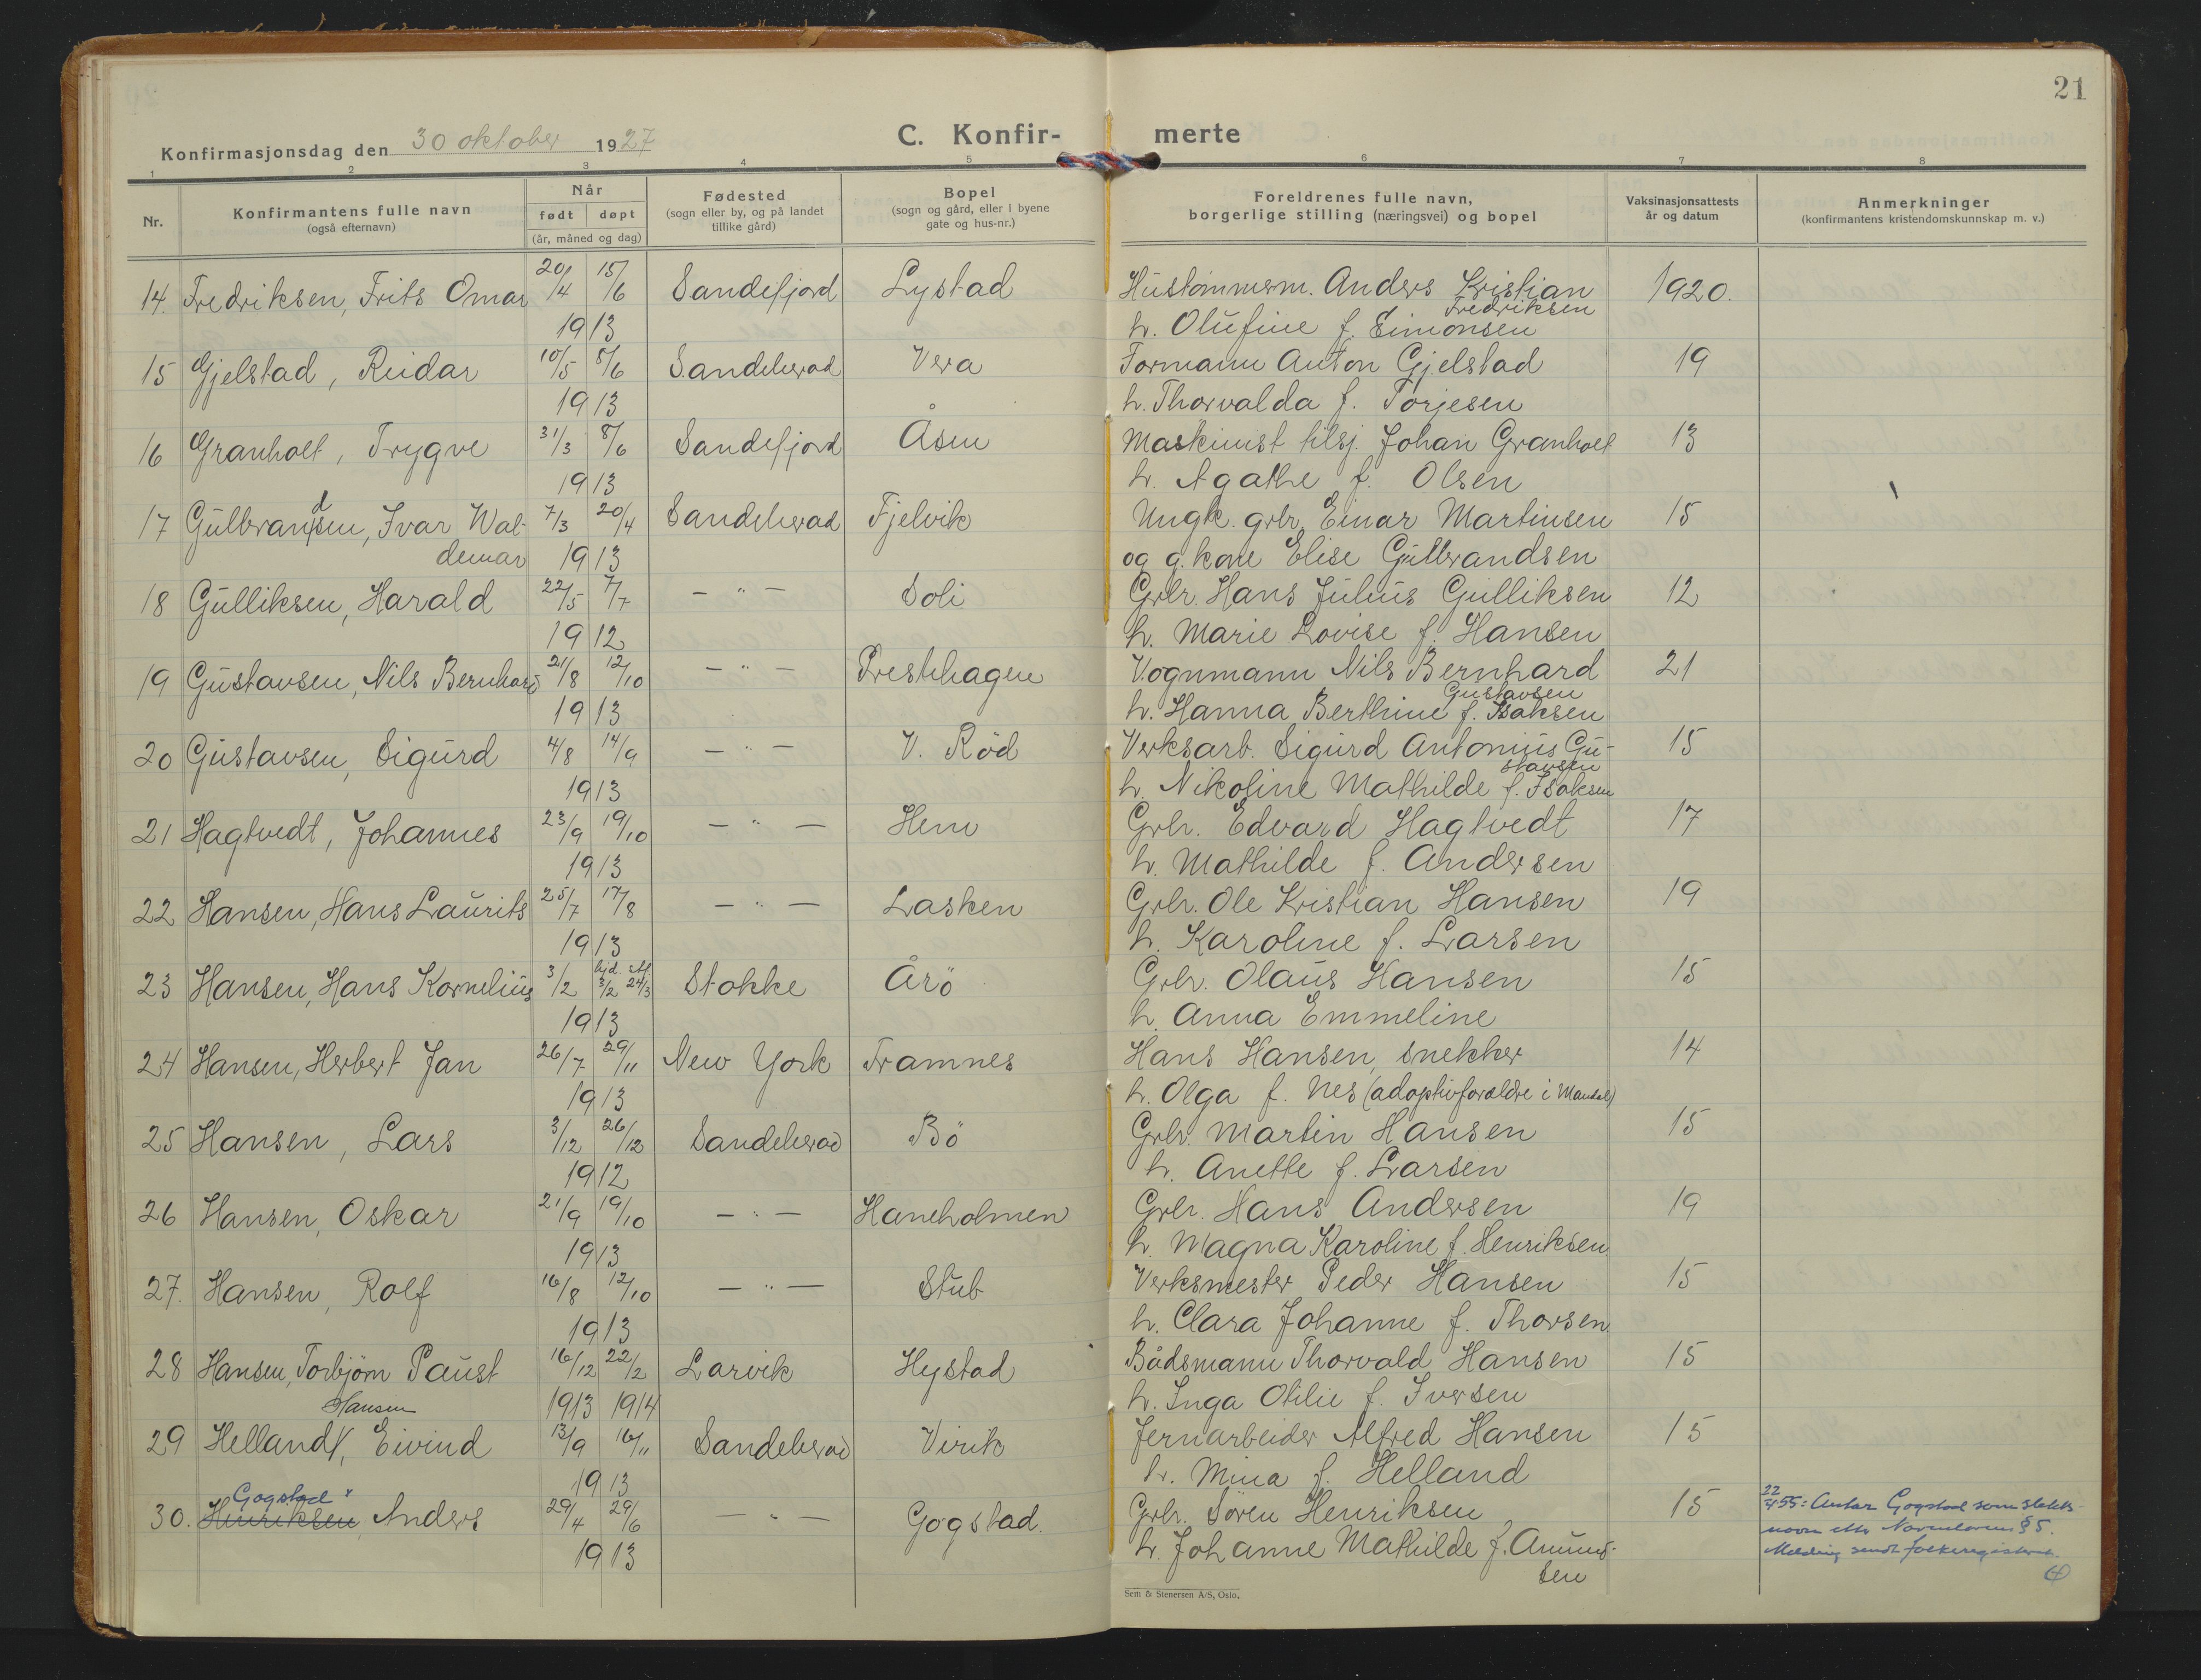 21
Konfirmasjonsdag den 30 oktober 1927
C. Konfir- merte
1 2 3 4 5 6 7 8
Nr. Konfirmantens fulle navn (også efternavn) Når født døpt (år, måned og dag) Fødested (sogn eller by, og på landet tillike gård) Bopel (sogn og gård, eller i byene gate og hus-nr.) Foreldrenes fulle navn, borgerlige stilling (næringsvei) og bopel Vaksinasjonsattests år og datum Anmerkninger (konfirmantens kristendomskunnskap m. v.)
14. Fredriksen, Frits Omar 20/4 15/6 Sandefjord Lystad Hustømmerm. Anders Kristian Fredriksen 1920.
1913 h. Olufine f. Simonsen
15 Gjelstad, Reidar 10/5 8/6 Sandeherad Vera Formann Anton Gjelstad 19
1913 h. Thorvalda f. Torjesen
16 Granholt, Trygve 31/3 8/6 Sandefjord Åsen Maskinist tilsj. Johan Granholt 13
1913 h. Agathe f. Olsen
17 Gulbrandsen, Ivar Wal- 7/3 20/4 Sandeherad Fjelvik Ungk. grbr. Einar Martinsen 15
demar 1913 og g. kone Elise Gulbrandsen
18 Gulliksen, Harald 22/5 7/7 — " — Soli Grbr. Hans Julius Gulliksen 12
1912 h. Marie Lovise f. Hansen
19 Gustavsen, Nils Bernhard 21/8 12/10 — " — Prestehagen Vognmann Nils Bernhard Gustavsen 21
1913 h. Hanna Berthine f. Isaksen
20 Gustavsen, Sigurd 4/8 14/9 — " — V. Rød Verksarb. Sigurd Antonius Gu- stavsen 15
1913 h. Nikoline Mathilde f. Isaksen
21 Hagtvedt, Johannes 23/9 19/10 — " — Hem Grbr. Edvard Hagtvedt 17
1913 h. Mathilde f. Andersen
22 Hansen, Hans Laurits 25/7 17/8 — " — Lasken Grbr. Ole Kristian Hansen 19
1913 h. Karoline f. Larsen
23 Hansen, Hans Kornelius 3/2 hjd. 3/2 st. 24/3 Stokke Årö Grbr. Olaus Hansen 15
1913 h. Anna Emmeline
24 Hansen, Herbert Jan 26/7 29/11 New York Framnes Hans Hansen, snekker 14
1913 h. Olga f. Nes (adoptivforældre i Mandal)
25 Hansen, Lars 3/12 26/12 Sandeherad Bö Grbr. Martin Hansen 15
1912 h. Anette f. Larsen
26 Hansen, Oskar 21/9 19/10 — " — Haneholmen Grbr. Hans Andersen 19
1913 h. Magna Karoline f. Henriksen
27. Hansen, Rolf 16/8 12/10 — " — Stub Verksmester Peder Hansen 15
1913 h. Clara Johanne f. Thorsen
28 Hansen, Torbjørn Paust 16/12 22/2 Larvik Hystad Bådsmann Thorvald Hansen 15
1913 1914 h. Inga Otilie f. Iversen
Hansen
29 Helland, Eivind 13/9 16/11 Sandeherad Virik Jernarbeider Alfred Hansen 15
1913 h. Mina f. Helland
Gogstad
30. Henriksen, Anders 29/4 29/6 — " — Gogstad. Grbr. Søren Henriksen 15
1913 h. Johanne Mathilde f. Amund- sen
55: Antar Gogstad som slekts-
navn etter Navneloven § 5.
Melding sendt folkeregisteret.
Sem & Stenersen A/S, Oslo.